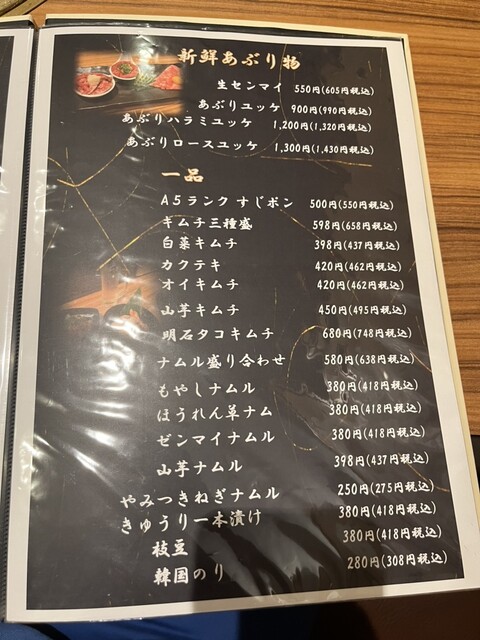 新鮮あぶり物
生センマイ 550円(605円税込)
あぶりユッケ 900円(990円税込)
あぶりハラミユッケ 1,200円(1,320円税込)
あぶりロースユッケ 1,300円(1,430円税込)
一品
A5ランク すじポン 500円(550円税込)
キムチ三種盛 598円(658円税込)
白菜キムチ 398円(437円税込)
カクテキ 420円(462円税込)
オイキムチ 420円(462円税込)
山芋キムチ 450円(495円税込)
明石タコキムチ 680円(748円税込)
ナムル盛り合わせ 580円(638円税込)
もやしナムル 380円(418円税込)
ほうれん草ナム 380円(418円税込)
ゼンマイナムル 380円(418円税込)
山芋ナムル 398円(437円税込)
やみつきねぎナムル 250円(275円税込)
きゅうり一本漬け 380円(418円税込)
枝豆 380円(418円税込)
韓国のり 280円(308円税込)